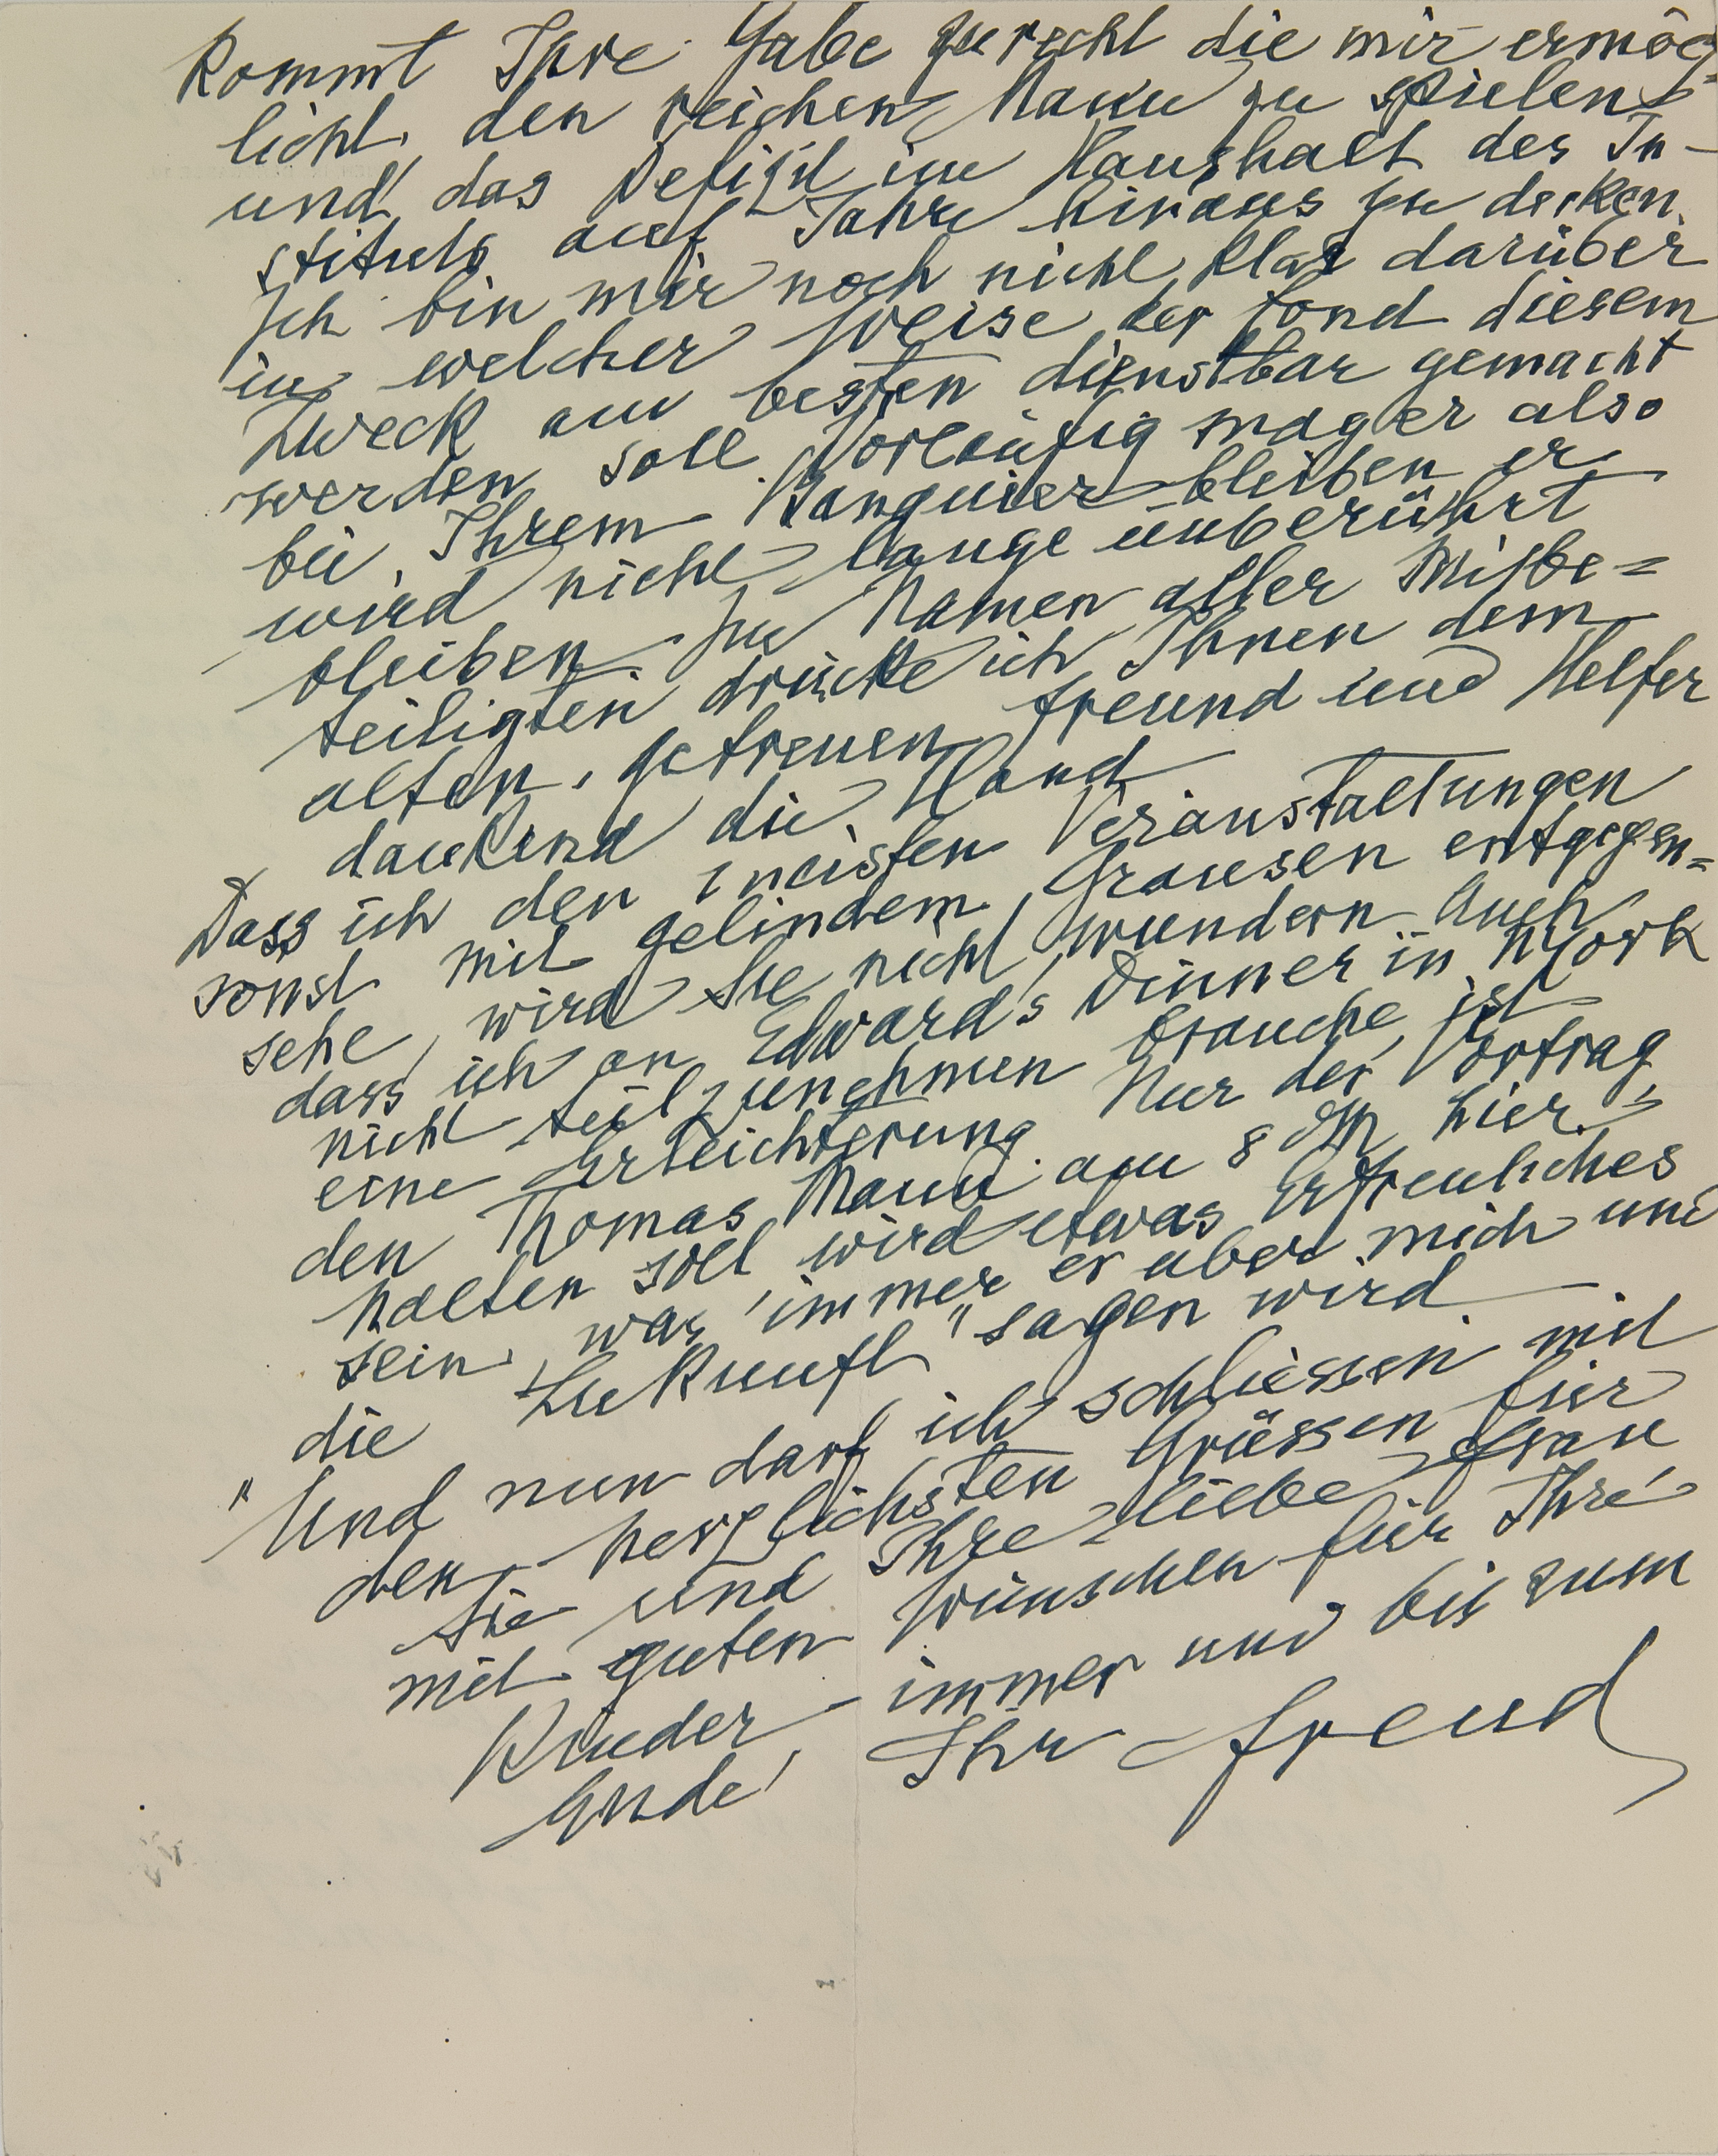 kommt Ihre Gabe zurecht die mir ermög=
licht, den reichen Mann zu spielen
und das Defizit im Haushalt des In-
stituts auf Jahre hinaus zu decken.
Ich bin mir noch nicht klar darüber
in welcher Weise der Fond diesem
Zweck am besten dienstbar gemacht
werden soll. Vorläufig mag er also
bei Ihrem Banquier bleiben er
wird nicht lange unberührt
bleiben. Im Namen aller Mitbe=
teiligten drücke ich Ihnen dem
alten, getreuen Freund und Helfer
dankend die Hand
Dass ich den meisten Veranstaltungen
sonst mit gelindem Grausen entgegen=
sehe, wird Sie nicht wundern. Auch
dass ich an Edward's Dinner in NYork
nicht teilzunehmen brauche, ist
eine Erleichterung. Nur der Vortrag
den Thomas Mann am 8 dM hier
halten soll wird etwas Erfreuliches
sein, was immer er über mich und
die Zukunft" sagen wird
" Und nun darf ich schliessen mit
den herzlichsten Grüssen für
Sie und Ihre liebe Frau
mit guten Wünschen für Ihre
Kinder – immer und bis zum
Ende, Ihr Freud